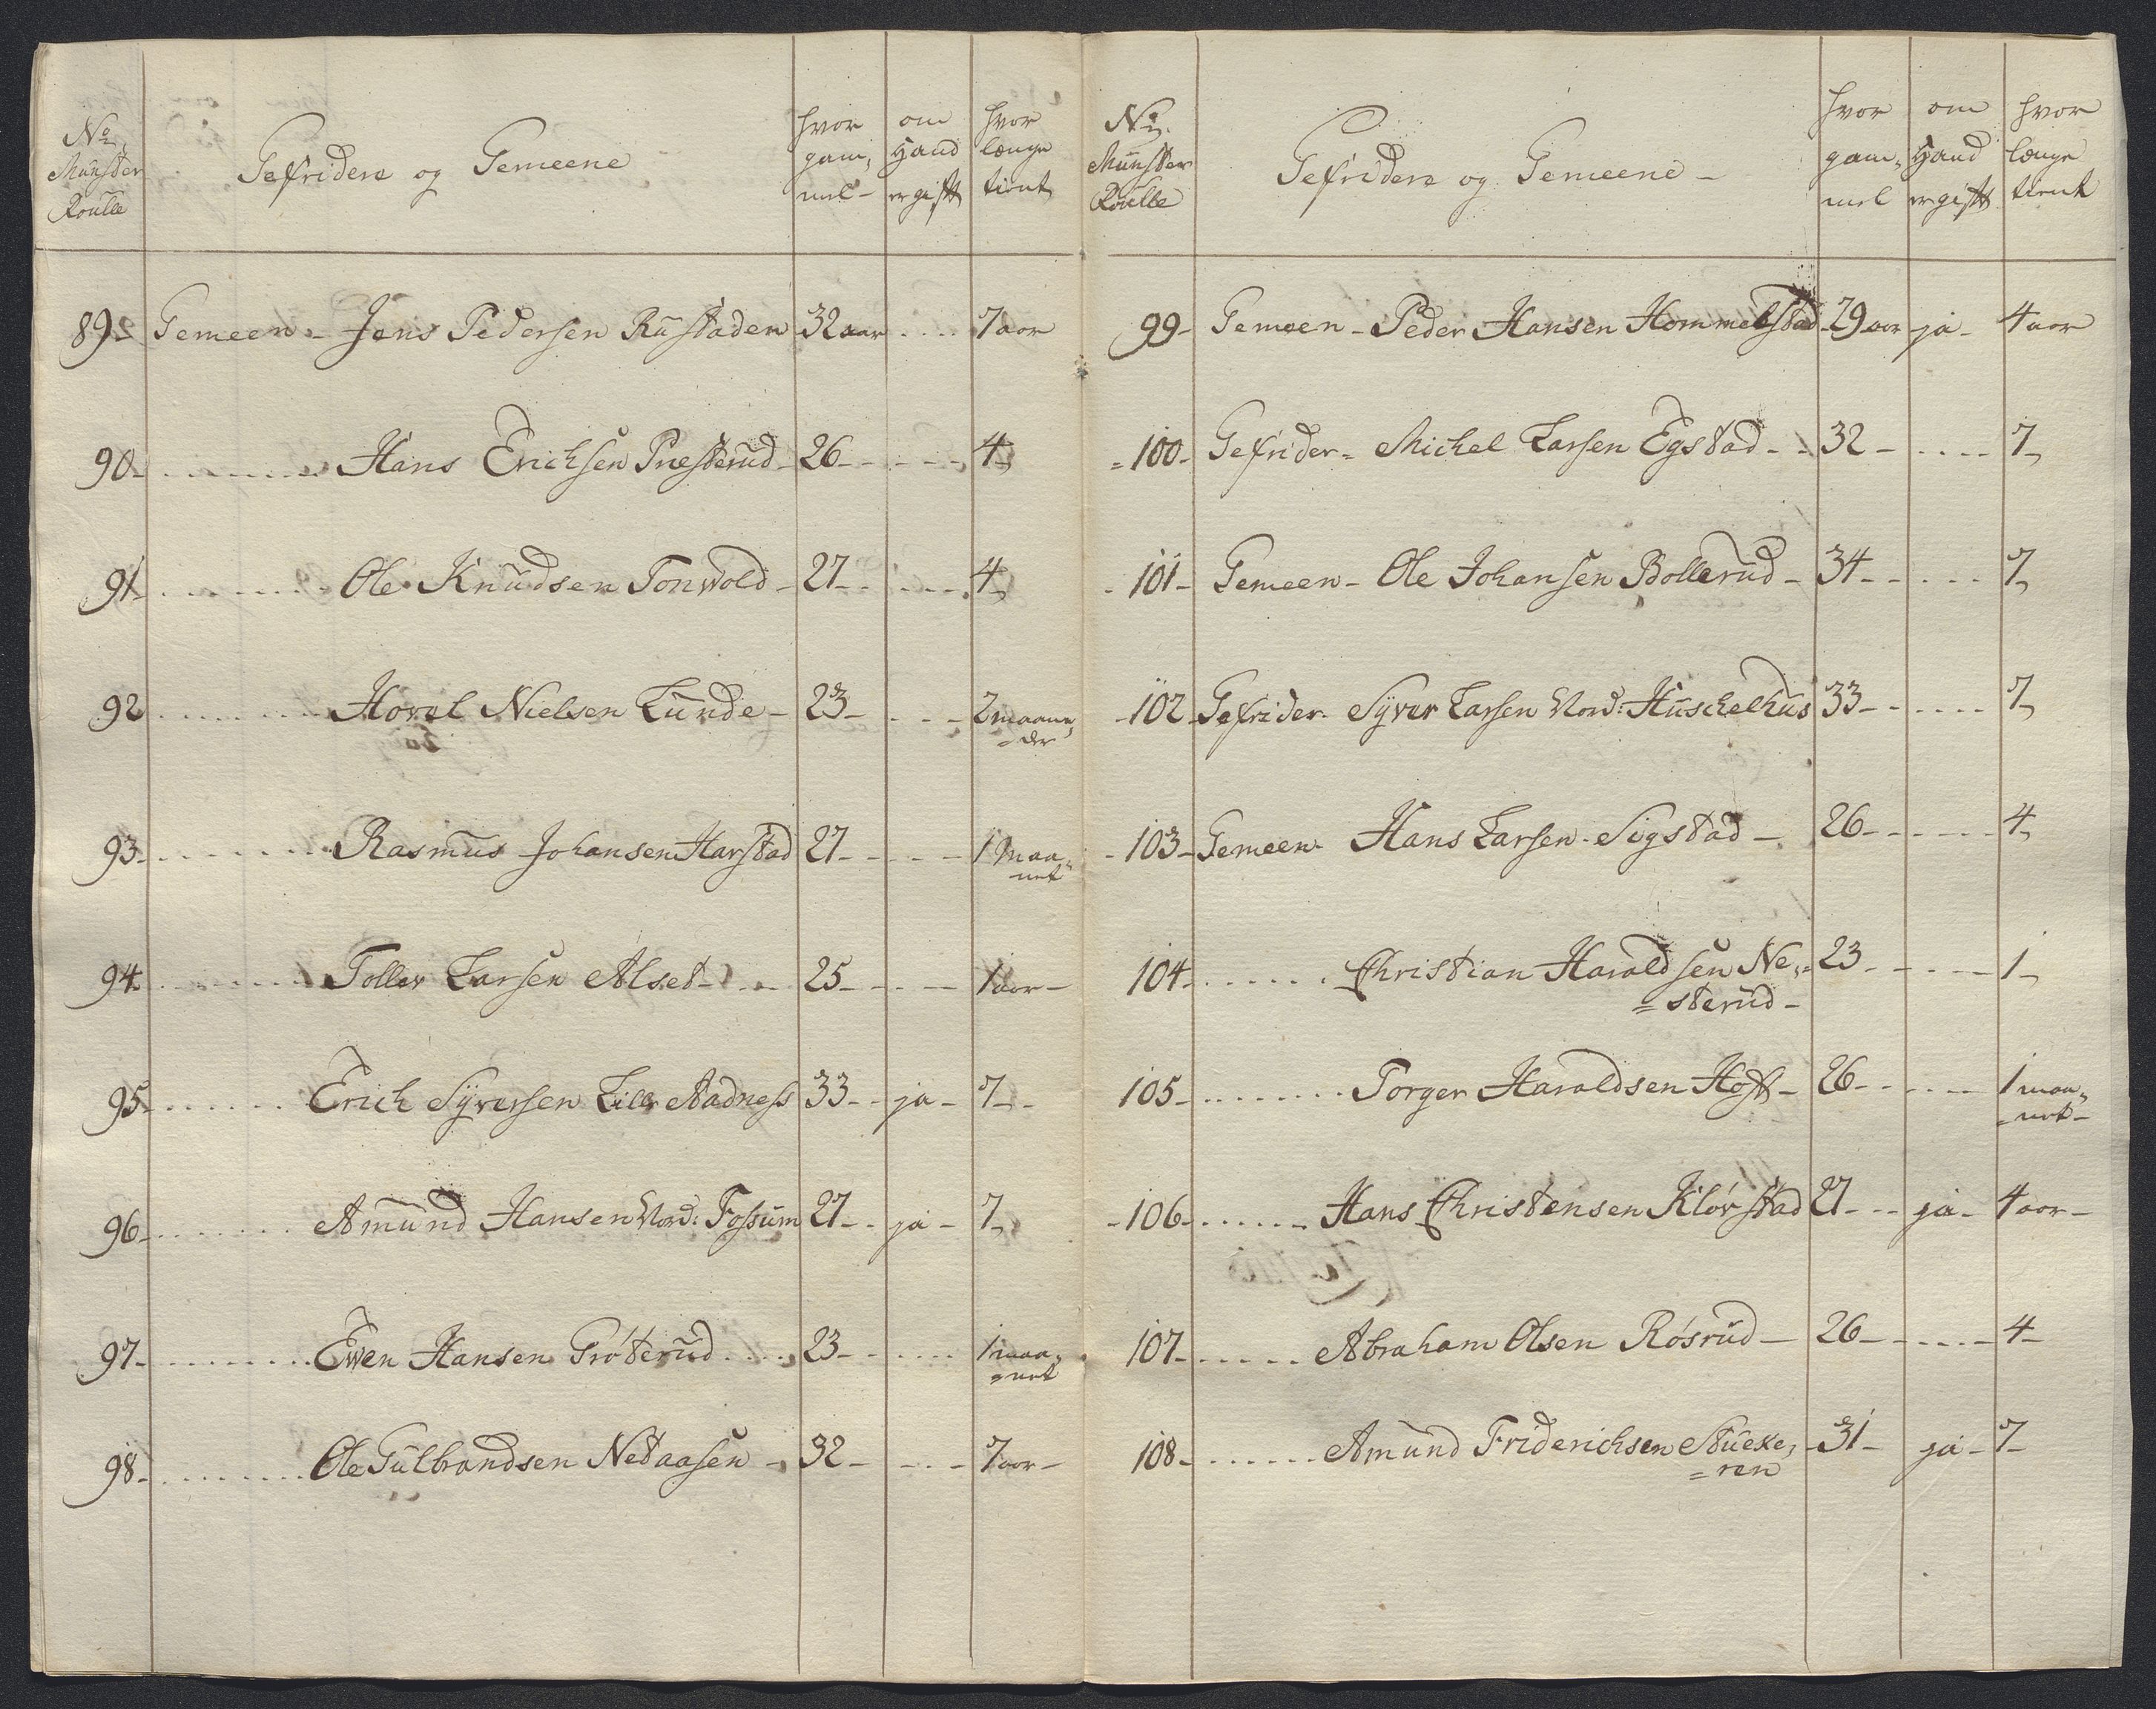 No
Munster
Roulle
Gefridere og Gemeene
hvor
gam,
mel-
om
Hand
er gift
hvor
længe
tient
89- Gemeen- Jens Pedersen Rustaden 32 aar .... 7 aar
90- ........ Hans Erichsen Presterud- 26- - - - - 4-
91- ........ Ole Knudsen Tonwold- 27- - - - - 4-
92 ........ Hovel Nielsen Lunde- 23- - - - 2 maane,
=der
93- ........ Rasmus Johansen Harstad 27- - - - 1 Maa=
net
94 ........ Toller Larsen Alset- - - 25- - - - 1 aar-
95- ........ Erich Syversen Lille Aadness 33- - ja- 7-
96- ........ Amund Hansen Nord: Fossum 27- - ja- 7-
97- ........ Ewen Hansen Grøterud .... 23- - .... 1 maa,
=net
98- ........ Ole Gulbrandsen Netaasen - 32- - - - 7 aar-
No
Munster
Roulle
Gefridere og Gemeene-
hvor
gam=
mel
om
Hand
er gift
hvor
længe
tient
99- Gemeen- Peder Hansen Hommelstad- 29 aar ja- 4 aar
=100- Gefrider= Michel Larsen Egstad- - 32- .... 7-
-101- Gemeen- Ole Johansen Bollerud- 34- - .... 7-
-102- Gefrider- Syver Larsen Nord: Huschelhus 33- - .... 7-
-103- Gemeen- Hans Larsen Sigstad- 26- - .... 4-
104- ...... Christian Haraldsen Ne,= 23- - - - 1-
=sterud-
105- ........ Torger Haraldsen Hoft- 26- - .... 1 maa=
=net-
-106- ...... Hans Christensen Klørstad 27- - ja- 4 aar-
107- ...... Abraham Olsen Røsrud- 26- .... 4-
108- ...... Amund Friderichsen Stuexe, -31- ja- 7-
=ren